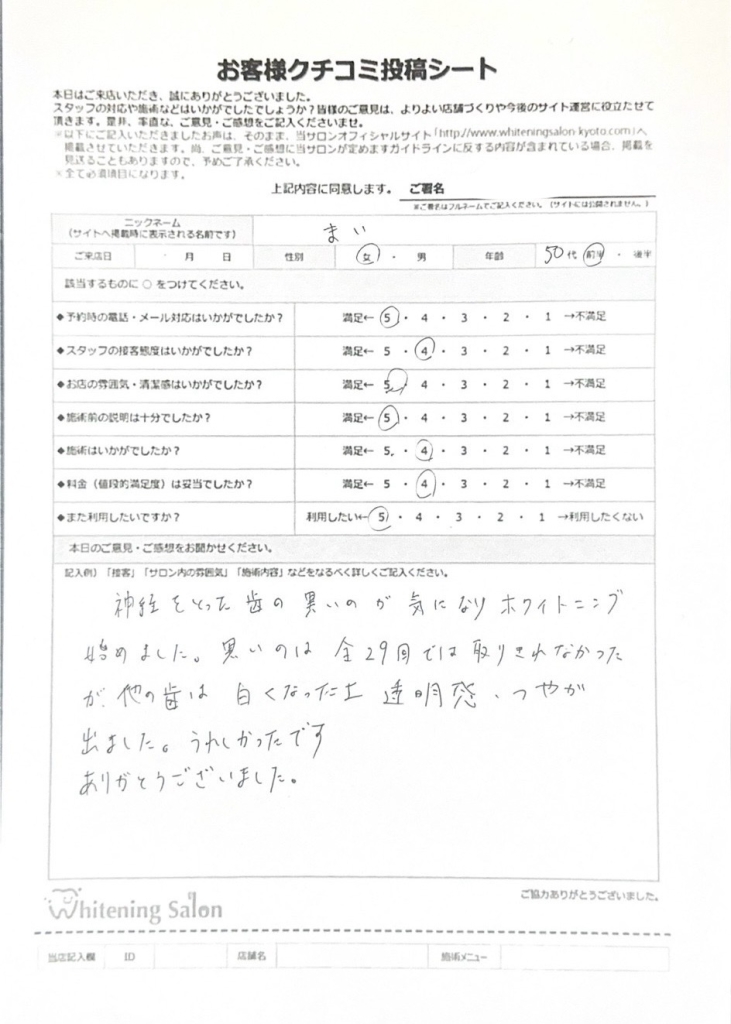 お客様クチコミ投稿シート
本日はご来店いただき、誠にありがとうございました。
スタッフの対応や施術などはいかがでしたでしょうか?皆様のご意見は、よりよい店舗づくりや今後のサイト運営に役立たせて
頂きます。是非、率直な、ご意見・ご感想をご記入くださいませ。
※以下にご記入いただきましたお声は、そのまま、当サロンオフィシャルサイト「http://www.whiteningsalon-kyoto.com」へ
掲載させていただきます。尚、ご意見・ご感想に当サロンが定めますガイドラインに反する内容が含まれている場合、掲載を
見送ることもありますので、予めご了承ください。
※全て必須項目になります。
上記内容に同意します。 ご署名
※ご署名はフルネームでご記入ください。(サイトには公開されません。)
ニックネーム
(サイトへ掲載時に表示される名前です) まい
ご来店日 月 日 性別 女・男 年齢 50代 前半・後半
該当するものに○をつけてください。
◆予約時の電話・メール対応はいかがでしたか? 満足←5・4・3・2・1→不満足
◆スタッフの接客態度はいかがでしたか? 満足←5・4・3・2・1→不満足
◆お店の雰囲気・清潔感はいかがでしたか? 満足←5・4・3・2・1→不満足
◆施術前の説明は十分でしたか? 満足←5・4・3・2・1→不満足
◆施術はいかがでしたか? 満足←5・4・3・2・1→不満足
◆料金(値段的満足度)は妥当でしたか? 満足←5・4・3・2・1→不満足
◆また利用したいですか? 利用したい←5・4・3・2・1→利用したくない
本日のご意見・ご感想をお聞かせください。
記入例)「接客」「サロン内の雰囲気」「施術内容」などをなるべく詳しくご記入ください。
神経をとった歯の黒いのが気になりホワイトニング
始めました。黒いのは全29回では取りきれなかった
が、他の歯は白くなった上透明感、つやが
出ました。うれしかったです
ありがとうございました。
ご協力ありがとうございました。
Whitening Salon
当店記入欄 ID 店舗名 施術メニュー